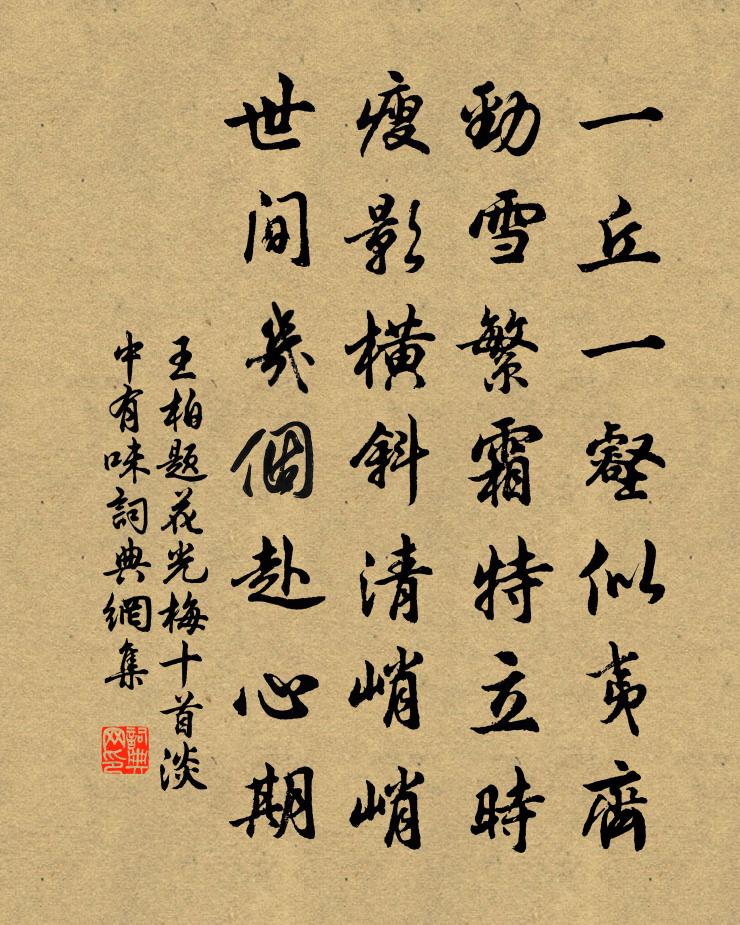 一丘一壑似夷齊
勁雪繁霜特立時
瘦影橫斜清峭峭
世間幾個赴心期
王柏題花光梅十首淡
中有味詞典網集
詞典
网印